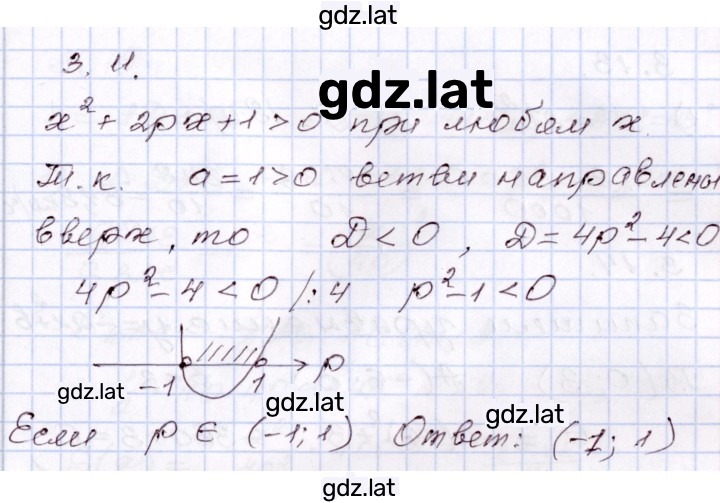 gdz.lat
3.11.
gdz.lat
x² + 2px + 1 > 0 при любом x.
Т.к. a = 1 > 0 ветви направлены
вверх, то D < 0, D = 4p² - 4 < 0
4p² - 4 < 0 /: 4 p² - 1 < 0
-1 1 p
gdz.lat
gdz.lat
gdz.lat
Если p ∈ (-1; 1) Ответ: (-1; 1)
gdz.lat